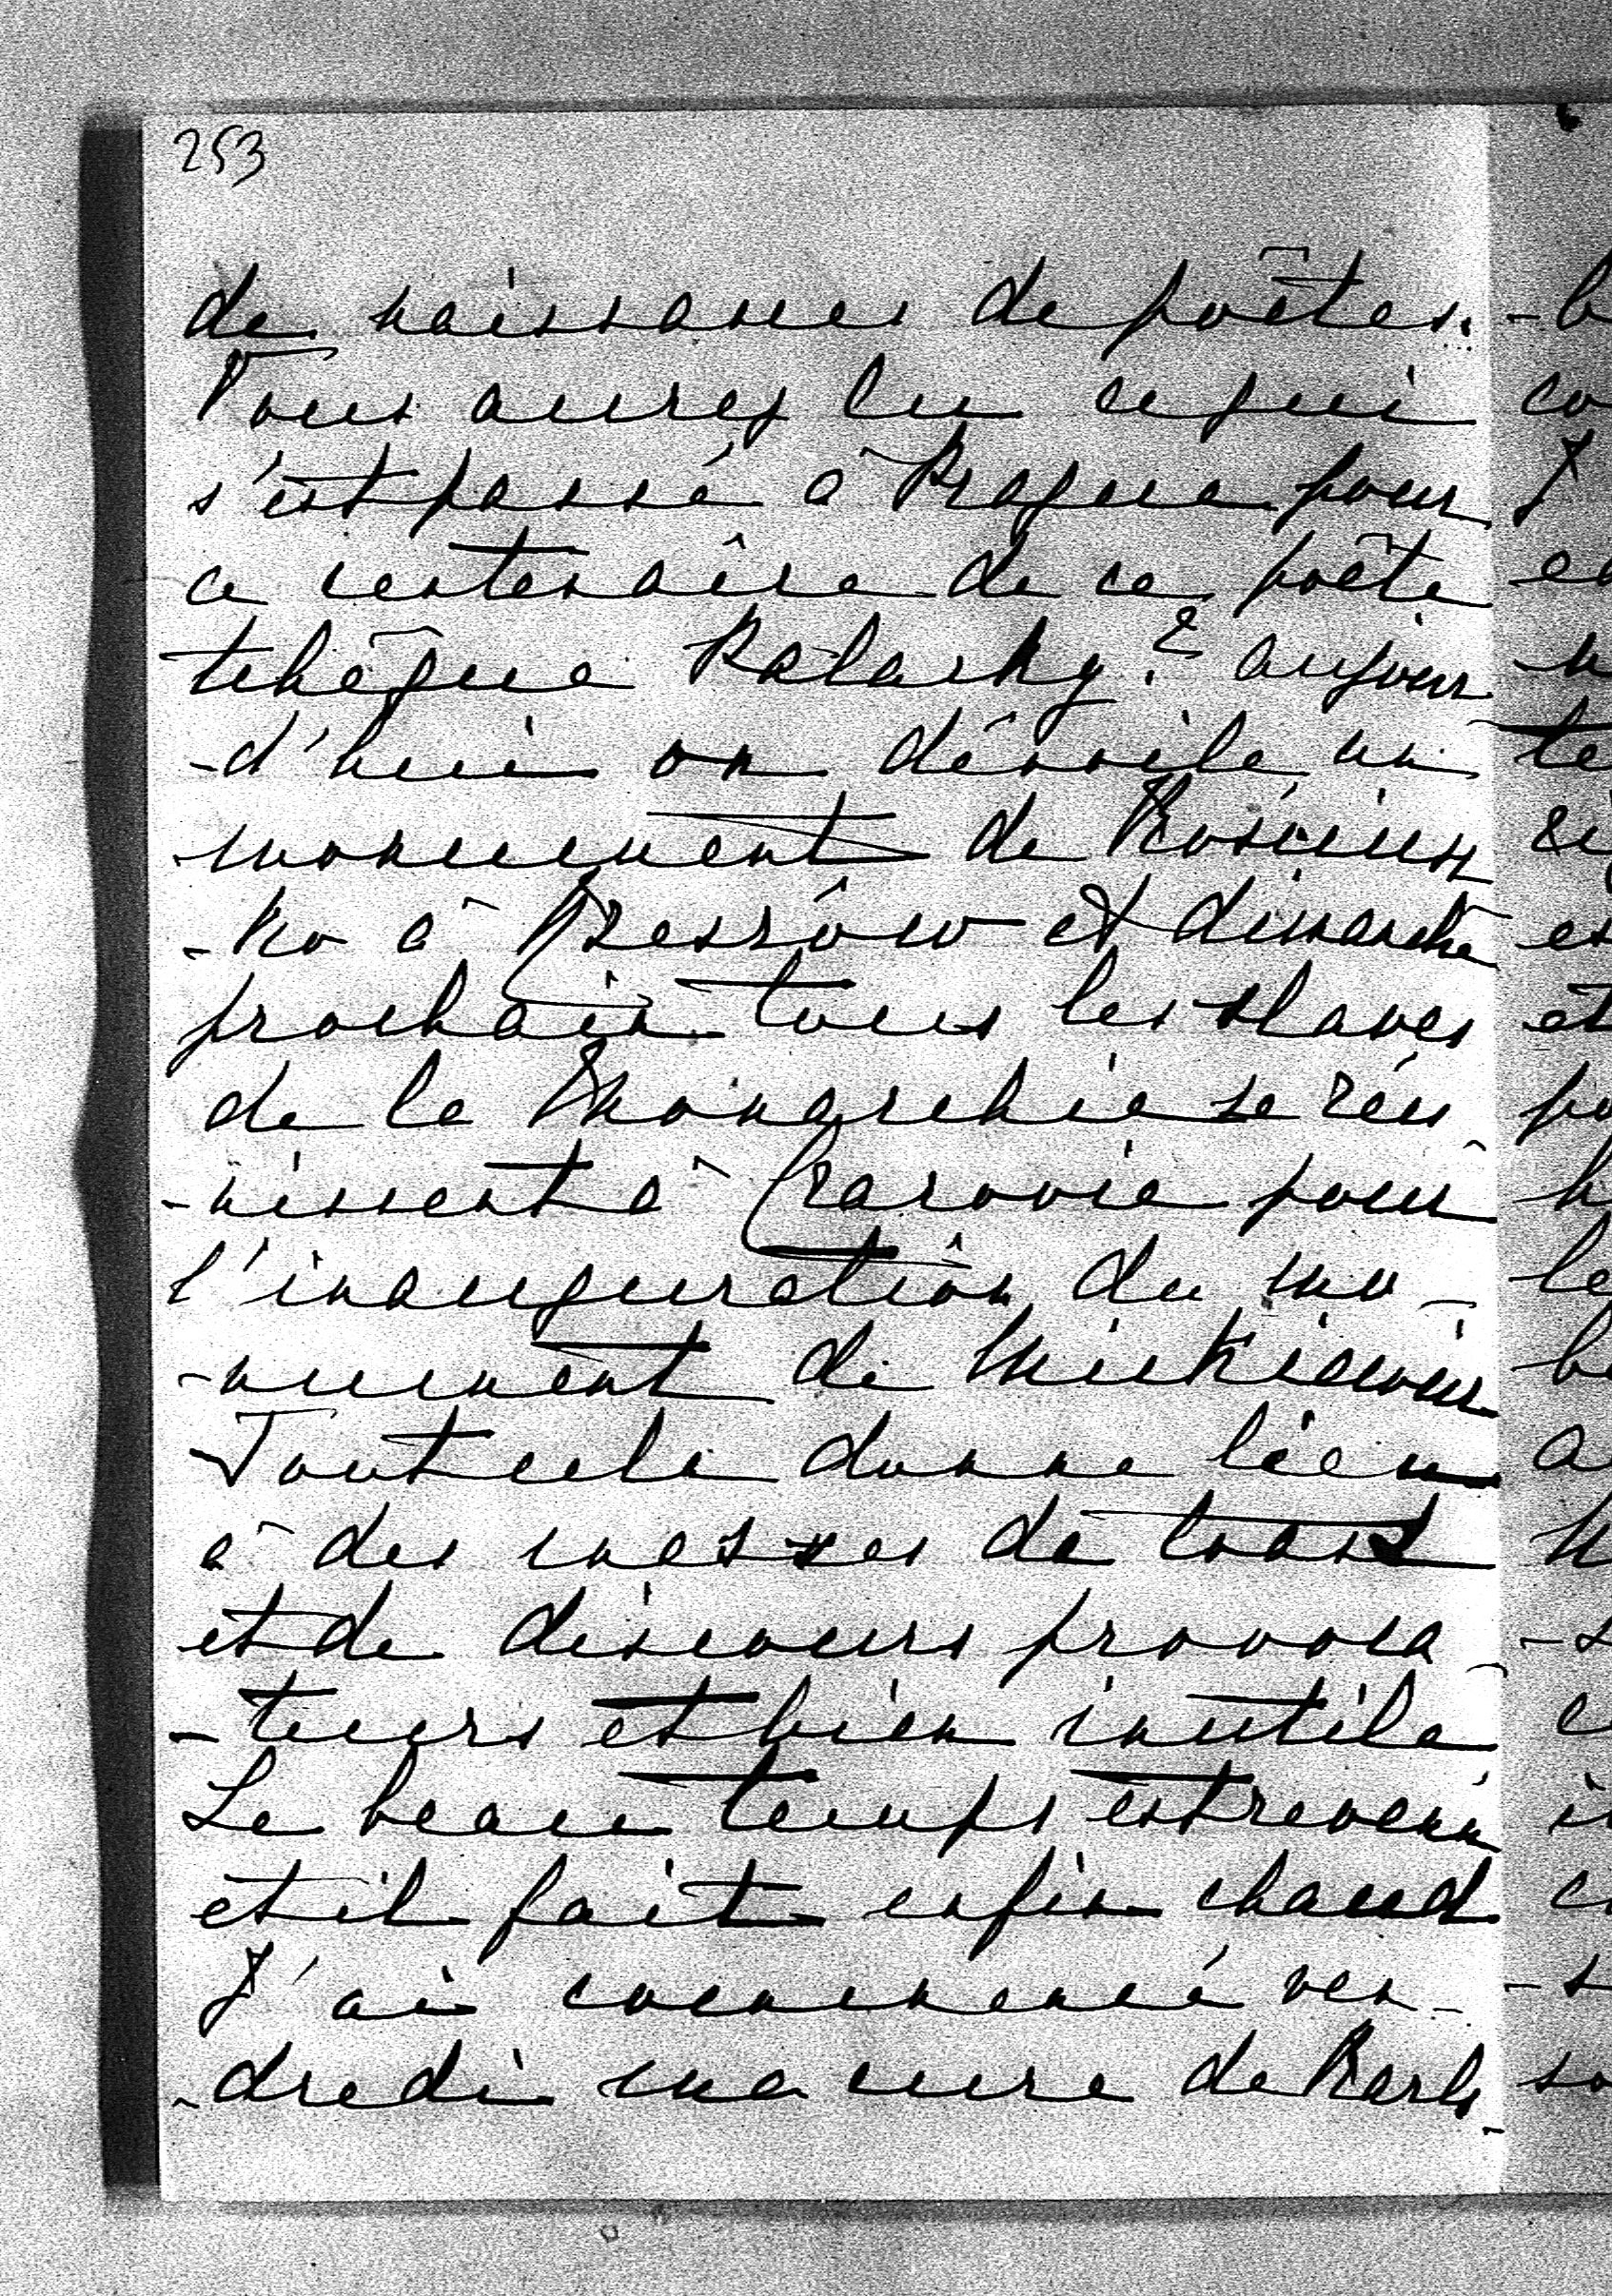 253
de naissances de poëtes.
Vous aurez lu ce qui
s'est passé à Prague pour
ce centenaire de ce poëte
tchèque Palacky? aujour
-d'hui on dévoile un
monument de Kosciusz
-ko à Rzeszów et dimanche
prochain tous les slaves
de la Monarchie se réu
-nissent à Cracovie pour
l'inauguration du mo-
-nument de Mickiewicz
Tout cela donne lieu
à des masses de toast
et de discours provoca
-teurs et bien inutile
Le beau temps est revenu
et il fait enfin chaud
J'ai commencé ven-
-dredi ma cure de Karls-